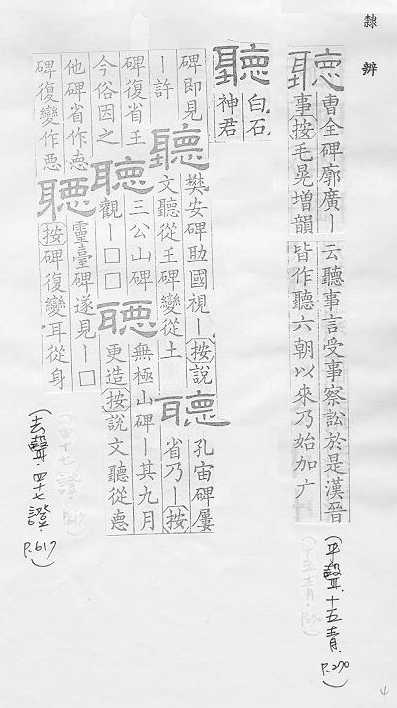 隸辨
聽 曹全碑廓廣丨 云聽事言受事察訟於是漢晉
事按毛晃增韻 皆作聽六朝以來乃始加广
(平聲.十五青. P.270)
聽 白石
神君
碑即見 聽 樊安碑助國視丨按說 聽 孔宙碑屢
丨許 文聽從王碑變從土 省乃丨按
碑復省王 聽 三公山碑 聽 無極山碑丨其九月
今俗因之 觀丨□□ 更造按說文聽從悳
他碑省作 聽 靈臺碑遂見丨□
碑復變作 按碑復變耳從身
(去聲.四十七證 P.617)
4